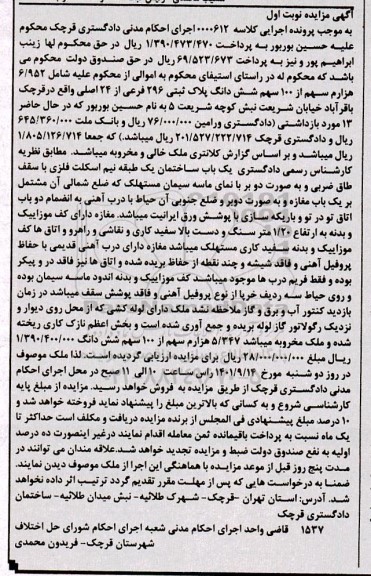 آگهی مزایده نوبت اول
به موجب پرونده اجرایی کلاسه ۰۰۰۰۶۱۲ اجرای احکام مدنی دادگستری قرچک محکوم
علیه حسین بوربور به پرداخت ۱/۳۹۰/۴۷۳/۴۷۰ ریال در حق محکوم لها زینب
ابراهیم پور و نیز به پرداخت ۶۹/۵۲۳/۶۷۳ ریال در حق صندوق دولت محکوم می
باشد که محکوم له در راستای استیفای محکوم به اموالی از محکوم علیه شامل ۶/۹۵۲
هزارم سهم از ۱۰۰ سهم شش دانگ پلاک ثبتی ۲۹۶ فرعی از ۲۴ اصلی واقع درقرچک
باقرآباد خیابان شریعت نبش کوچه شریعت ۵ به نام حسین بوربور که در حال حاضر
۱۳ مورد بازداشتی (دادگستری ورامین ۷۶/۰۰۰/۰۰۰ ریال و بانک ملت ۶۴۵/۳۶۰/۰۰۰
ریال و دادگستری قرچک ۲۰۱/۵۲۷/۲۲۲/۷۱۴ ریال میباشد.) که جمعا ۱/۸۰۵/۱۲۶/۷۱۴
ریال میباشد و بر اساس گزارش کلانتری ملک خالی و مخروبه میباشد. مطابق نظریه
کارشناس رسمی دادگستری یک باب ساختمان یک طبقه نیم اسکلت فلزی با سقف
طاق ضربی و به صورت دو بر با نمای ماسه سیمان مستهلک که ضلع شمالی آن مشتمل
بر یک باب مغازه و به صورت دو بر و ضلع جنوبی آن حیاط با درب آهنی به انضمام دو باب
اتاق تو در تو و باریکه سازی با پوشش ورق ایرانیت میباشد. مغازه دارای کف موزاییک
و بدنه به ارتفاع ۱/۲۰ متر سنگ و دست بالا سفید کاری و نقاشی و راهرو و اتاق ها کف
موزاییک و بدنه سفید کاری مستهلک میباشد مغازه دارای درب آهنی قدیمی با حفاظ
پروفیل آهنی و فاقد شیشه و چند نقطه از حفاظ بریده شده و اتاق ها نیز فاقد در و پیکر
بوده و فقط فریم درب ها موجود میباشد کف موزاییک و بدنه اندود ماسه سیمان بوده
و روی حیاط سه ردیف خرپا از نوع پروفیل آهنی و فاقد پوشش سقف میباشد در زمان
بازدید کنتور آب و برق و گاز ملاحظه نشد ملک دارای لوله کشی که از محل روی دیوار و
نزدیک رگولاتور گاز لوله بریده و جمع آوری شده است و بخش اعظم نازک کاری ریخته
شده و ملک مخروبه میباشد ۵/۳۴۷ هزارم سهم از ۱۰۰ سهم شش دانگ ۱/۳۹۰/۴۰۰/۰۰۰
ریال مبلغ ۲۸/۰۰۰/۰۰۰/۰۰۰ ریال برای مزایده ارزیابی گردیده است. لذا ملک موصوف
در روز دو شنبه مورخ ۱۴۰۱/۹/۱۴ راس ساعت ۱۰ الی ۱۱ صبح در محل اجرای احکام
مدنی دادگستری قرچک از طریق مزایده به فروش خواهد رسید. مزایده از مبلغ پایه
کارشناسی شروع و به کسانی که بالاترین مبلغ را پیشنهاد نماید فروخته خواهد شد و
۱۰ درصد مبلغ پیشنهادی فی المجلس از برنده مزایده دریافت و مکلف است حداکثر تا
یک ماه نسبت به پرداخت باقیمانده ثمن معامله اقدام نمایند درغیر اینصورت ده درصد
اولیه به نفع صندوق دولت ضبط و مزایده تجدید خواهد شد.علاقه مندان می توانند در
مدت پنج روز قبل از موعد مزایده با هماهنگی این اجرا از ملک موصوف دیدن نمایند.
ضمنا به درخواست هایی که پس از مهلت مقرر تقدیم گردد ترتیب اثر داده نخواهد
شد. آدرس: استان تهران -قرچک- شهرک طلائیه- نبش میدان طلائیه- ساختمان
دادگستری قرچک
۱۵۳۷ قاضی واحد اجرای احکام مدنی شعبه اجرای احکام شورای حل اختلاف
شهرستان قرچک- فریدون محمدی